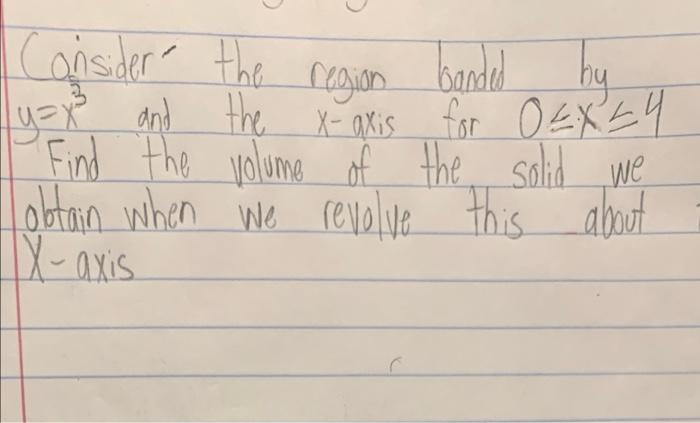 Consider the region banded by
y=x³ and the x-axis for 0≤x≤4
Find the volume of the solid we
obtain when we revolve this about
X-axis